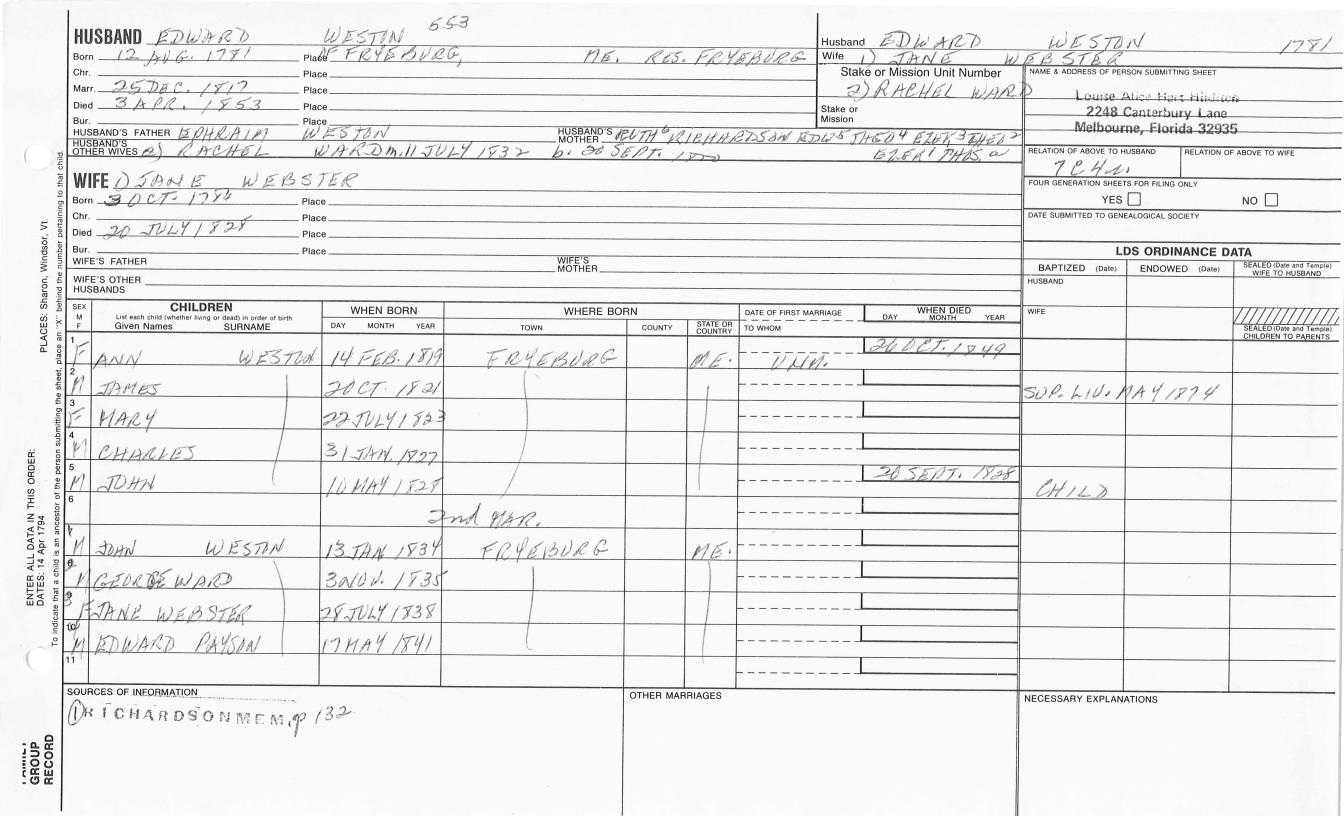 HUSBAND EDWARD WESTON 553
Born 12 AUG. 1781 Place OF FRYEBURG, ME. RES. FRYEBURG
Chr. Place
Marr. 25 DEC. 1817 Place
Died 3 APR. 1853 Place
Bur. Place
HUSBAND'S FATHER EPHRAIM WESTON HUSBAND'S MOTHER RUTH 6 RICHARDSON EDW 5 THEO 4 EZEK 3 THEO 2
HUSBAND'S OTHER WIVES 2) RACHEL WARD m. 11 JULY 1832 b. 30 SEPT. EZEK 1 THOS. a
Husband EDWARD WESTON 1781
Wife 1) JANE WEBSTER
Stake or Mission Unit Number
2) RACHEL WARD
Stake or Mission
NAME & ADDRESS OF PERSON SUBMITTING SHEET
Louise Alice Hart
2248 Canterbury Lane
Melbourne, Florida 32935
RELATION OF ABOVE TO HUSBAND RELATION OF ABOVE TO WIFE
7C4r.
FOUR GENERATION SHEETS FOR FILING ONLY
YES NO
DATE SUBMITTED TO GENEALOGICAL SOCIETY
WIFE 1) JANE WEBSTER
Born 3 OCT. 1786 Place
Chr. Place
Died 20 JULY 1828 Place
Bur. Place
WIFE'S FATHER WIFE'S MOTHER
WIFE'S OTHER HUSBANDS
LDS ORDINANCE DATA
BAPTIZED (Date) ENDOWED (Date) SEALED (Date and Temple) WIFE TO HUSBAND
HUSBAND
WIFE
SEALED (Date and Temple) CHILDREN TO PARENTS
SEX M F
CHILDREN
List each child (whether living or dead) in order of birth
Given Names SURNAME
WHEN BORN
DAY MONTH YEAR
WHERE BORN
TOWN COUNTY STATE OR COUNTRY
DATE OF FIRST MARRIAGE
TO WHOM
WHEN DIED
DAY MONTH YEAR
1 F ANN WESTON 14 FEB. 1819 FRYEBURG ME. UNM. 26 OCT. 1849
2 M JAMES 2 OCT. 1821 SUP. LIV. MAY 1874
3 F MARY 22 JULY 1823
4 M CHARLES 31 JAN. 1827
5 M JOHN 10 MAY 1828 20 SEPT. 1828 CHILD
6 2nd MAR.
M JOHN WESTON 13 JAN 1834 FRYEBURG ME.
M GEORGE WARD 3 NOV. 1835
9 F JANE WEBSTER 28 JULY 1838
10 M EDWARD PAYSON 17 MAY 1841
11
SOURCES OF INFORMATION
1 RICHARDSON MEM. p 132
OTHER MARRIAGES
NECESSARY EXPLANATIONS
ENTER ALL DATA IN THIS ORDER:
DATES: 14 Apr 1794 PLACES: Sharon, Windsor, Vt.
To indicate that a child is an ancestor of the person submitting the sheet, place an "X" behind the number pertaining to that child.
FAMILY GROUP RECORD